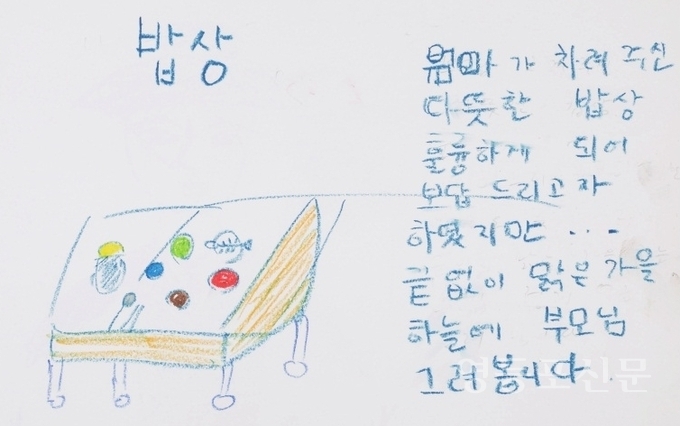 밥상
엄마가 차려 주신
다뜻한 밥상
훌륭하게 되어
보답 드리고자
하였지만 ...
끝없이 맑은 가을
하늘에 부모님
그려봅니다.
영등포신문